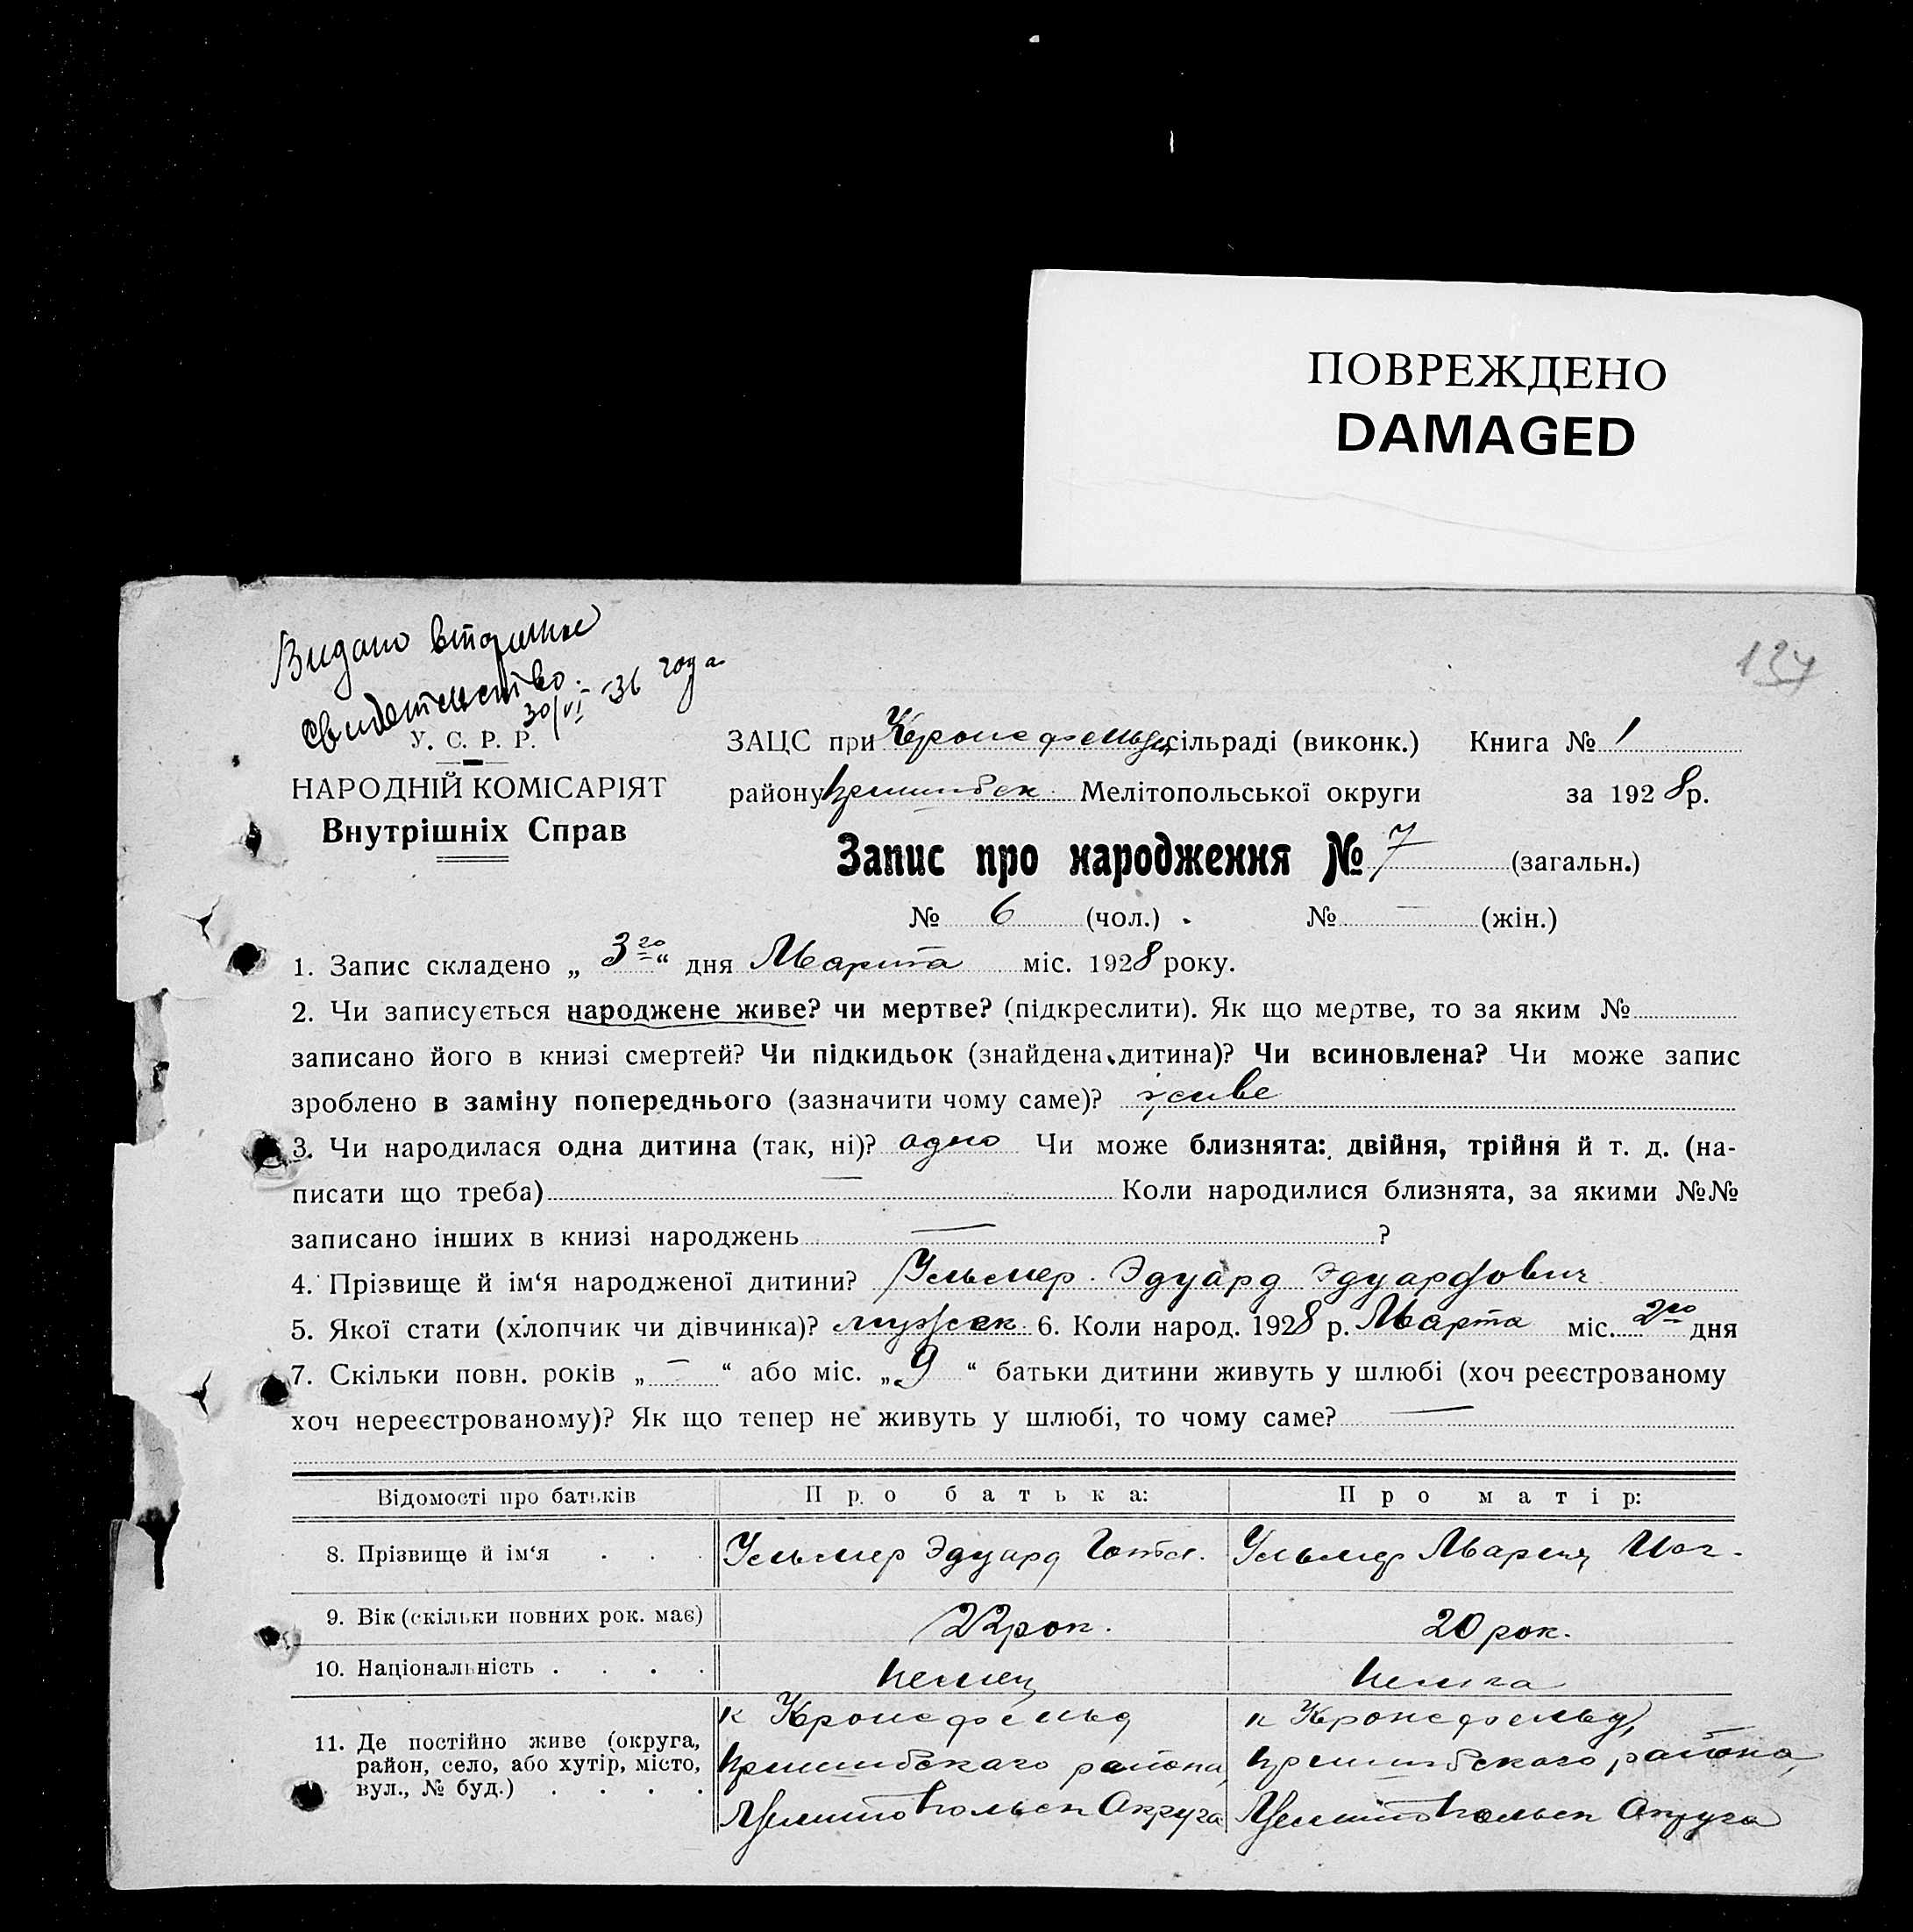 ПОВРЕЖДЕНО
DAMAGED
Видано вторичное
свидетельство.
30/VI-36 года
134
У. С. Р. Р.
НАРОДНІЙ КОМІСАРІЯТ
Внутрішніх Справ
ЗАЦС при Кронсфельд сільраді (виконк.) Книга № 1
району Пришибск. Мелітопольської округи за 1928 р.
Запис про народження № 7 (загальн.)
№ 6 (чол.) № — (жін.)
1. Запис складено „ 3го “ дня Марта міс. 1928 року.
2. Чи записується народжене живе? чи мертве? (підкреслити). Як що мертве, то за яким №
записано його в книзі смертей? Чи підкидьок (знайдена дитина)? Чи всиновлена? Чи може запис
зроблено в заміну попереднього (зазначити чому саме)? живе
3. Чи народилася одна дитина (так, ні)? одно Чи може близнята: двійня, трійня й т. д. (на-
писати що треба) — Коли народилися близнята, за якими №№
записано інших в книзі народжень — ?
4. Прізвище й ім‘я народженої дитини? Ульмер Эдуард Эдуардович
5. Якої стати (хлопчик чи дівчинка)? мужск. 6. Коли народ. 1928 р. Марта міс. 2го дня
7. Скільки повн. років „ — “ або міс. „ 9 “ батьки дитини живуть у шлюбі (хоч реєстрованому
хоч нереєстрованому)? Як що тепер не живуть у шлюбі, то чому саме? —
Відомості про батьків Про батька: Про матір:
8. Прізвище й ім‘я . . . Ульмер Эдуард Готл. Ульмер Мария
9. Вік (скільки повних рок. має) 22 рок. 20 рок.
10. Національність . . . . немец немка
к Кронсфельд к Кронсфельд,
11. Де постійно живе (округа,
район, село, або хутір, місто, Пришибскаго района, Пришибскаго района,
вул., № буд.) . . . . Мелитопольск Округа Мелитопольск Округа